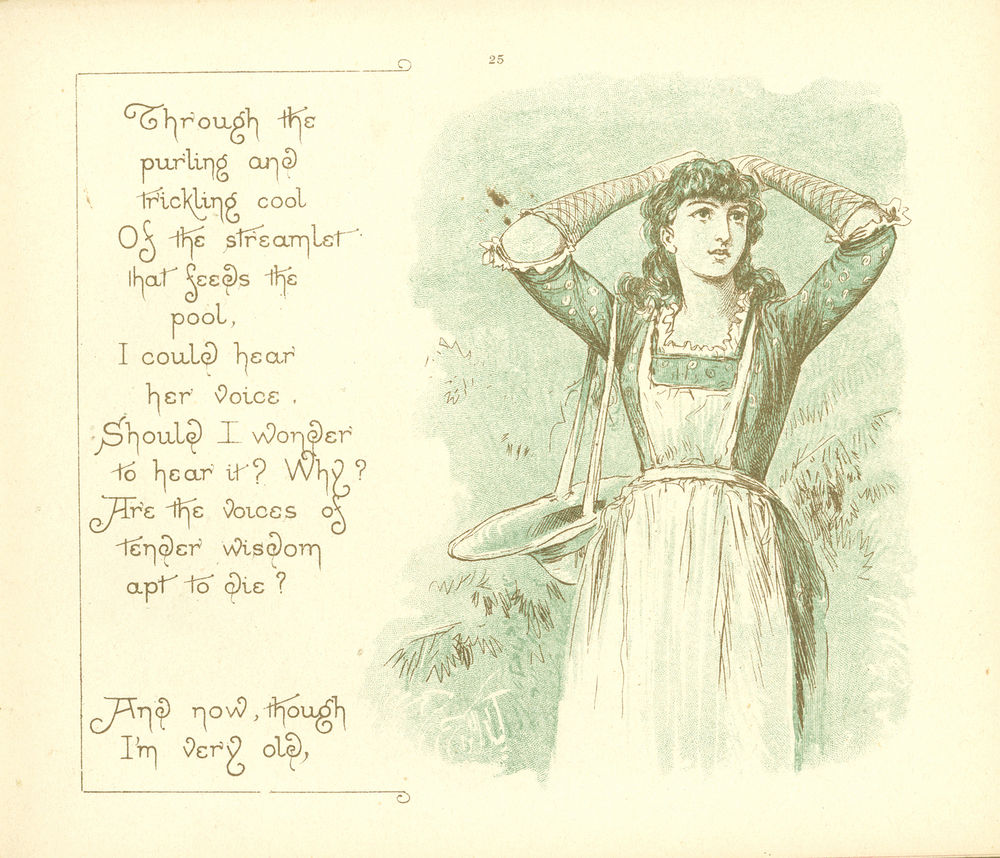 25
Through the
purling and
trickling cool
Of the streamlet
that feeds the
pool,
I could hear
her voice.
Should I wonder
to hear it? Why?
Are the voices of
tender wisdom
apt to die?
And now, though
I'm very old,